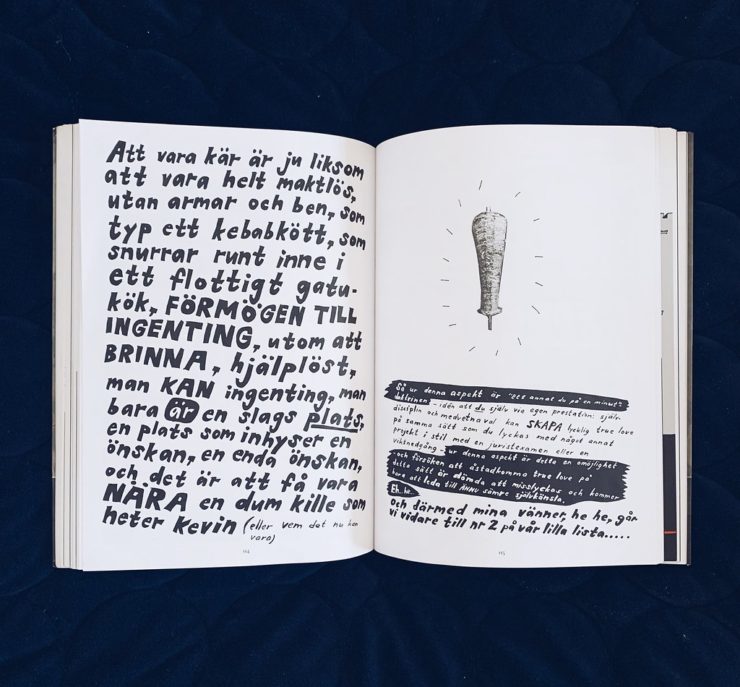 Att vara kär är ju liksom
att vara helt maktlös,
utan armar och ben, som
typ ett kebabkött, som
snurrar runt inne i
ett flottigt gatu-
kök, FÖRMÖGEN TILL
INGENTING, utom att
BRINNA, hjälplöst,
man KAN ingenting, man
bara är en slags plats,
en plats som inhyser en
önskan, en enda önskan,
och det är att få vara
NÄRA en dum kille som
heter Kevin (eller vem det nu kan
vara)
114
Så ur denna aspekt är "Get annat du på en minut"-
doktrinen - idén att du själv via egen prestation: själv-
disciplin och medvetna val kan SKAPA lycklig true love
på samma sätt som du lyckas med något annat
projekt i stil med en juristexamen eller en
viktnedgång - ur denna aspekt är detta en omöjlighet
och försöken att åstadkomma true love på
detta sätt är dömda att misslyckas och kommer
bara att leda till ännu sämre självkänsla.
Och därmed mina vänner, he he, går
vi vidare till nr 2 på vår lilla lista.....
115